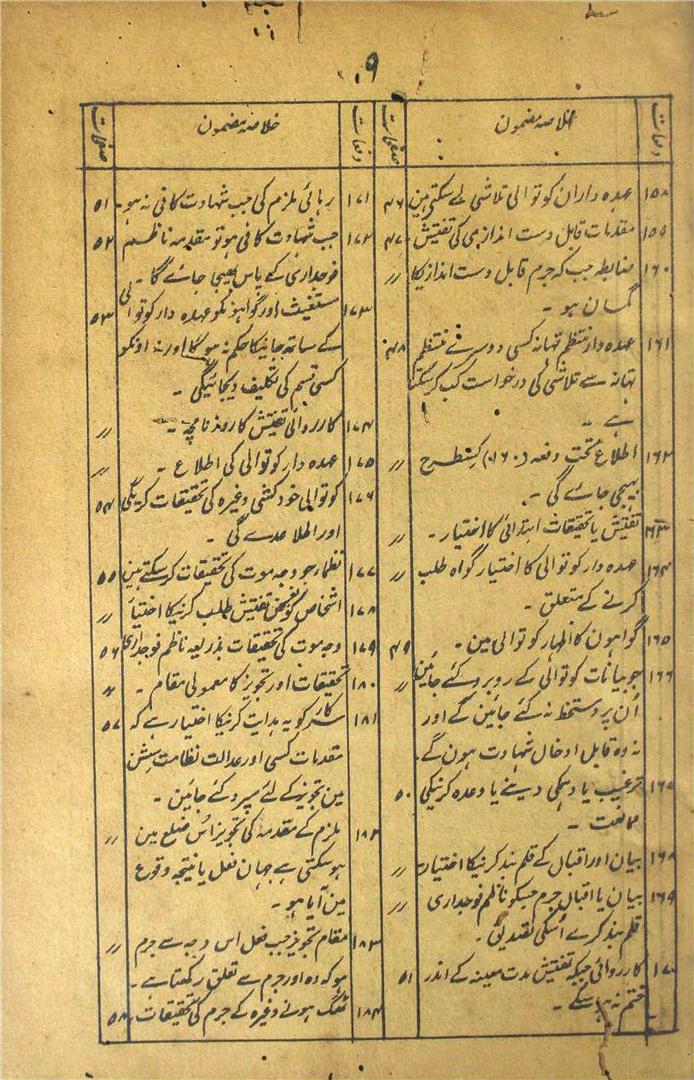 ۹
دفعات خلاصہ مضمون صفحات
۱۵۸ عہدہ داران کوتوالی تلاشی لے سکتی ہین ۴۶
۱۵۹ مقدمات قابل دست اندازی کی تفتیش ۔ ۴۷
۱۶۰ ضابطہ جب کہ جرم قابل دست اندازیکا 〃
گمان ہو ۔
۱۶۱ عہدہ دار منتظم تہانہ کسی دوسرے منتظم ۴۸
تہانہ سے تلاشی کی درخواست کب کرسکتا
ہے ۔
۱۶۲ اطلاع تحت دفعہ (۱۶۰) کسطرح 〃
بہیجی جائے گی ۔
۱۶۳ تفتیش یا تحقیقات ابتدائی کا اختیار ۔ 〃
۱۶۴ عہدہ دار کوتوالی کا اختیار گواہ طلب 〃
کرنے کے متعلق ۔
۱۶۵ گواہون کا اظہار کوتوالی مین ۔ ۴۹
۱۶۶ جو بیانات کوتوالی کے روبرو کئے جائین 〃
اُن پر دستخط نہ کئے جائین گے اور
نہ وہ قابل ادخال شہادت ہون گے ۔
۱۶۷ ترغیب یا دہمکی دینے یا وعدہ کرنیکی ۵۰
ممانعت ۔
۱۶۸ بیان اور اقبال کے قلم بند کرنیکا اختیار 〃
۱۶۹ بیان یا اقبال جرم جسکو ناظم فوجداری 〃
قلم بند کرے اُسکی تصدیق ۔
۱۷۰ کارروائی جبکہ تفتیش مدت معینہ کے اندر ۵۱
ختم نہ ہوسکے ۔
دفعات خلاصہ مضمون صفحات
۱۷۱ رہائی ملزم کی جب شہادت کافی نہ ہو ۔ ۵۱
۱۷۲ جب شہادت کافی ہو تو مقدمہ ناظم ۵۲
فوجداری کے پاس بہیجا جائے گا ۔
۱۷۳ مستغیث اور گواہونکو عہدہ دار کوتوالی ۵۳
کے ساتھ جانیکا حکم نہ ہوگا اور نہ اونکو
کسی قسم کی تکلیف دیجائیگی ۔
۱۷۴ کارروائی تفتیش کا روزنامچہ ۔ 〃
۱۷۵ عہدہ دار کوتوالی کی اطلاع ۔ 〃
۱۷۶ کوتوالی خودکشی وغیرہ کی تحقیقات کریگی ۵۴
اور اطلاع دے گی ۔
۱۷۷ نظماء جو وجہ موت کی تحقیقات کرسکتے ہین ۵۵
۱۷۸ اشخاص کو بغرض تفتیش طلب کرنیکا اختیار 〃
۱۷۹ وجہ موت کی تحقیقات بذریعہ ناظم فوجداری ۵۶
۱۸۰ تحقیقات اور تجویز کا معمولی مقام ۔ 〃
۱۸۱ سرکار کو یہ ہدایت کرنیکا اختیار ہے کہ ۵۷
مقدمات کسی اور عدالت نظامت سشن
مین تجویز کے لئے سپرد کئے جائین ۔
۱۸۲ ملزم کے مقدمہ کی تجویز اُس ضلع مین 〃
ہوسکتی ہے جہان فعل یا نتیجہ وقوع
مین آیا ہو ۔
۱۸۳ مقام تجویز جب فعل اس وجہ سے جرم 〃
ہو کہ وہ اور جرم سے تعلق رکھتا ہے ۔
۱۸۴ ٹھگ ہونے وغیرہ کے جرم کی تحقیقات ۔ ۵۸